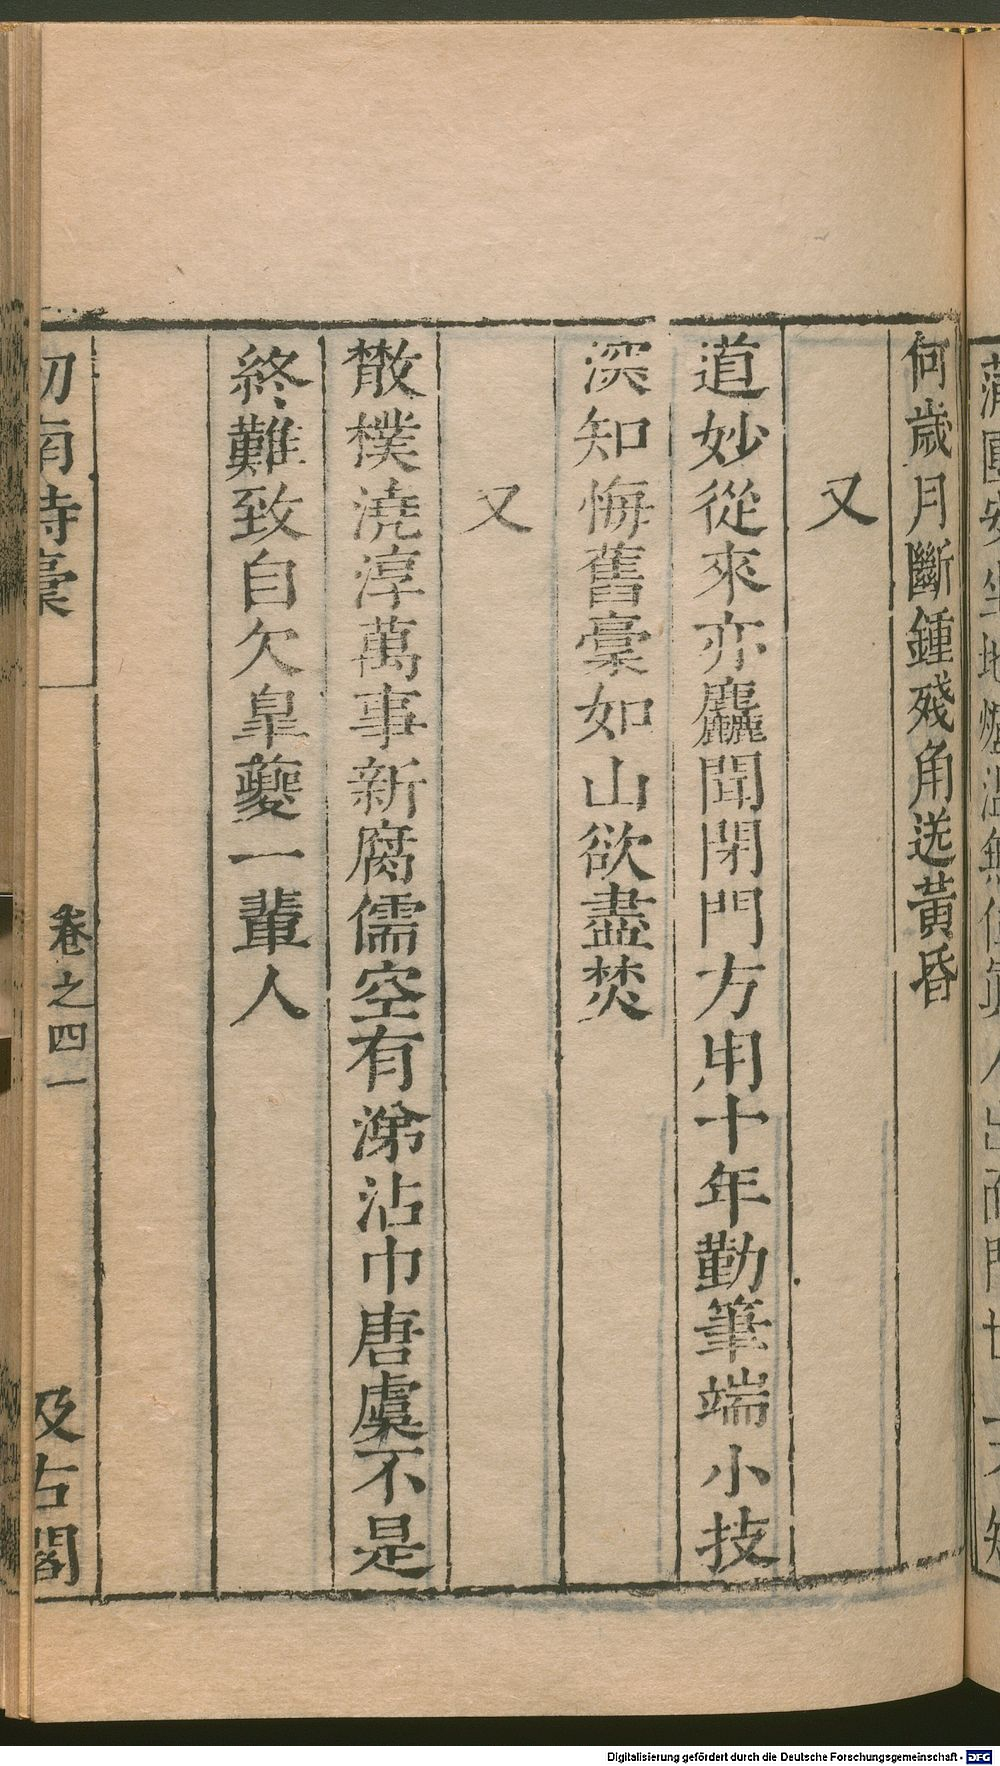 何歲月斷鍾殘角送黃昏
又
道妙從來亦麤聞閉門方用十年勤筆端小技
深知悔舊稾如山欲盡焚
又
散樸澆淳萬事新腐儒空有涕沾巾唐虞不是
終難致自欠臯夔一輩人
劍南詩稾
卷之四一
汲古閣
Digitalisierung gefördert durch die Deutsche Forschungsgemeinschaft - DFG